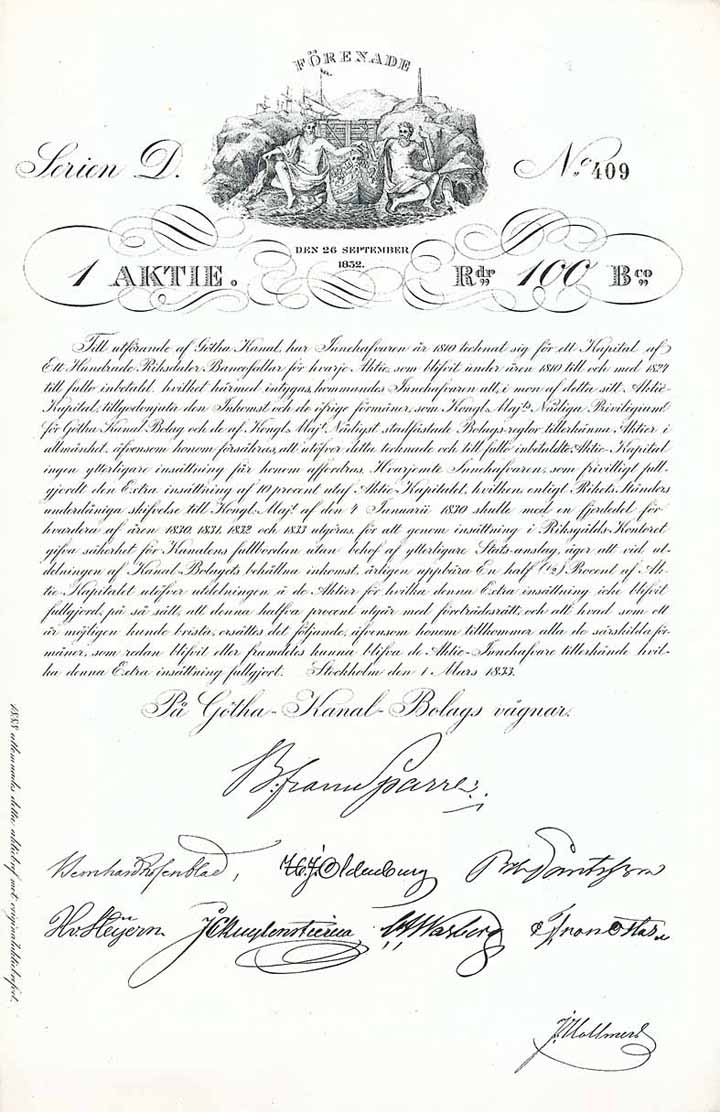 FÖRENADE
Serien D.
N.º 409
DEN 26 SEPTEMBER
1832.
1 AKTIE.
Rdr 100 Bco
Till utförande af Götha Kanal, har Innehafvaren år 1810 tecknat sig för ett Kapital af
Ett Hundrade Riksdaler Bancosedlar för hvarje Aktie, som blifvit under åren 1810 till och med 1824
till fullo inbetald, hvilket härmed intygas, kommandes Innehafvaren att, i mon af detta sitt Aktie
Kapital, tillgodonjuta den Inkomst och de öfrige förmåner, som Kongl. Maj:ts Nådiga Privilegium
för Götha Kanal Bolag och de af Kongl. Maj:t Nådigst stadfästade Bolags-reglor tillerkänna Aktier i
allmänhet, äfvensom honom försäkras, att utöfver detta tecknade och till fullo inbetaldte Aktie-Kapital
ingen ytterligare insättning får honom affordras. Hvarjemte Innehafvaren, som frivilligt full-
gjordt den Extra insättning af 10 procent utaf Aktie-Kapitalet, hvilken enligt Rikets Ständers
underdåniga skrifvelse till Kongl. Maj:t af den 4 Januarii 1830 skulle med en fjerdedel för
hvardera af åren 1830, 1831, 1832 och 1833 utgöras, för att genom insättning i Riksgälds-Kontoret
gifva säkerhet för Kanalens fullbordan utan behof af ytterligare Stats-anslag, äger att vid ut-
delningen af Kanal-Bolagets behållna inkomst, årligen uppbära En half (1/2) Procent af Ak-
tie-Kapitalet utöfver utdelningen å de Aktier för hvilka denna Extra insättning icke blifvit
fullgjord, på så sätt, att denna halfva procent utgår med företrädesrätt, och att hvad som ett
år möjligen kunde brista, ersättes det följande, äfvensom honom tillkommer alla de särskilda för-
måner, som redan blifvit eller framdeles kunna blifva de Aktie-Innehafvare tillerkände hvil-
ka denna Extra insättning fullgjort. Stockholm den 1 Mars 1833.
På Götha-Kanal-Bolags vägnar.
B. von Sparre
Bernhard Rosenblad, H. J. Oldenburg
H. v. Heijern
1888 utlemnades detta aktiebref mot originalaktiebrefvet.